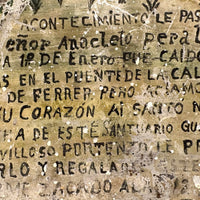 ACONTECIMIENTO LE PAS
eñor Anacleto pera
1º DE Enero QUE CAIDO
5 EN EL PUENTE DE LA CAL
DE FERRER PERO
SU CORAZÓN Al SANTO N
HA DE ESTE SANTUARIO
VILLOSO PORTENZO LE PR
RLO Y REGALA DE
ZACADO